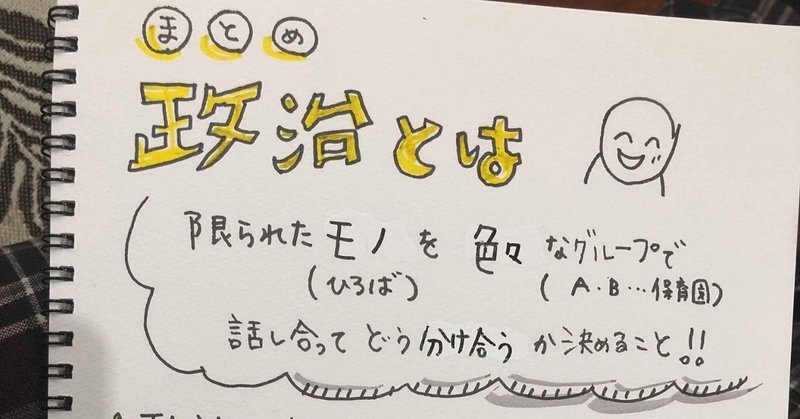 まとめ
政治とは
限られたモノを色々なグループで
(ひろば) (A・B…保育園)
話し合ってどう分け合うか決めること!!